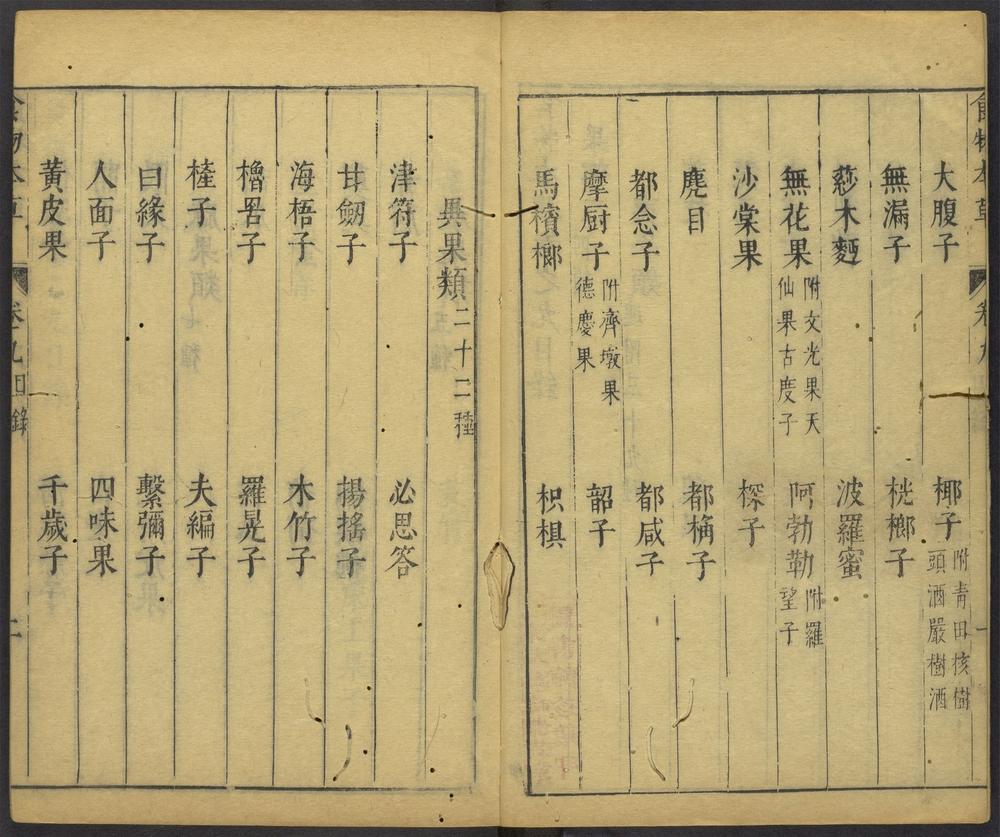 大腹子 椰子附青田核樹頭酒嚴樹酒
無漏子 桄榔子
莎木麪 波羅蜜
無花果附文光果天仙果古度子 阿勃勒附羅望子
沙棠果 㮈子
麂目 都桷子
都念子 都咸子
摩厨子附齊墩果德慶果 韶子
馬檳榔 枳椇
異果類二十二種
津符子 必思答
甘劒子 楊搖子
海梧子 木竹子
櫓罟子 羅晃子
㯑子 夫編子
白緣子 繫彌子
人面子 四味果
黃皮果 千歲子
食物本草 卷九目錄